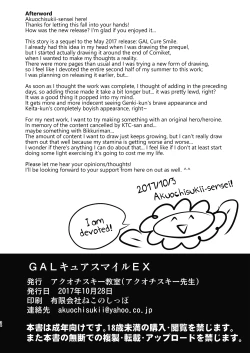 Afterword
Akuochisukii-sensei here!
Thanks for letting this fall into your hands!
How was the new release? I'm glad if you enjoyed it...
This story is a sequel to the May 2017 release: GAL Cure Smile.
I already had this idea in my head when I was drawing the prequel,
but I started actually drawing it around the end of Comiket,
when I wanted to try drawing variations.
There were more pages than usual and I was trying a new form of drawing,
so I feel like I devoted the entire second half of my summer to this work.
I was planning on releasing it earlier, but...
As soon as I thought the work was complete, I thought of adding in the preceding
days, so adding those made it take a bit longer to get out... pretty long, right!?
It was a good thing it popped into my mind.
It gets more and more indecent seeing Genki-kun's brave appearance and
Keita-kun's completely boyish appearance, right~
For my next work, I want to try making something with an original hero/heroine.
In memory of the content cancelled by KTC-san and...
maybe something with Bikkuriman...
The amount of content I want to draw just keeps growing, but I can't really draw
them out that well because my stamina is getting worse and worse...
I wonder if there's anything I can do about that... I feel like if I don't at least start
doing some light exercising it's going to cost me my life.
Please let me hear your opinions/thoughts!
I'll be looking forward to your support from here on out as well. ^^
2017/10/3
Akuochisukii-sensei!
I am devoted!
GALキュアスマイルEX
発行 アクオチスキー教室(アクオチスキー先生)
発行日 2017年10月28日
印刷 有限会社ねこのしっぽ
連絡先 akuochisukii@yahoo.co.jp
本書は成年向けです。18歳未満の購入・閲覧を禁じます。
また本書の無断での複製・転載・アップロードを禁じます。